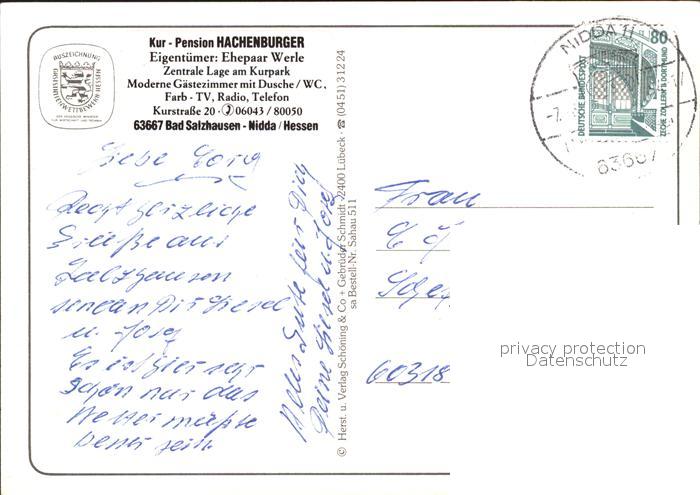 AUSZEICHNUNG
Kur - Pension HACHENBURGER
Eigentümer: Ehepaar Werle
Zentrale Lage am Kurpark
Moderne Gästezimmer mit Dusche / WC,
Farb - TV, Radio, Telefon
Kurstraße 20 · 06043 / 80050
63667 Bad Salzhausen - Nidda / Hessen
Liebe
Recht herzliche
Grüße aus
Salzhausen
senden Dir Gisel
u. Josef
Es ist hier sehr
schön nur das
Wetter müßte
besser sein.
Alles Gute für Dich
Deine Gisel u. Josef
© Herst. u. Verlag Schöning & Co + Gebrüder Schmidt · 2400 Lübeck · ☎ (0451) 31224
sa Bestell-Nr. Sahau 511
NIDDA 11
63667
80
DEUTSCHE BUNDESPOST
ZECHE ZOLLERN II DORTMUND
Frau
60318
privacy protection
Datenschutz